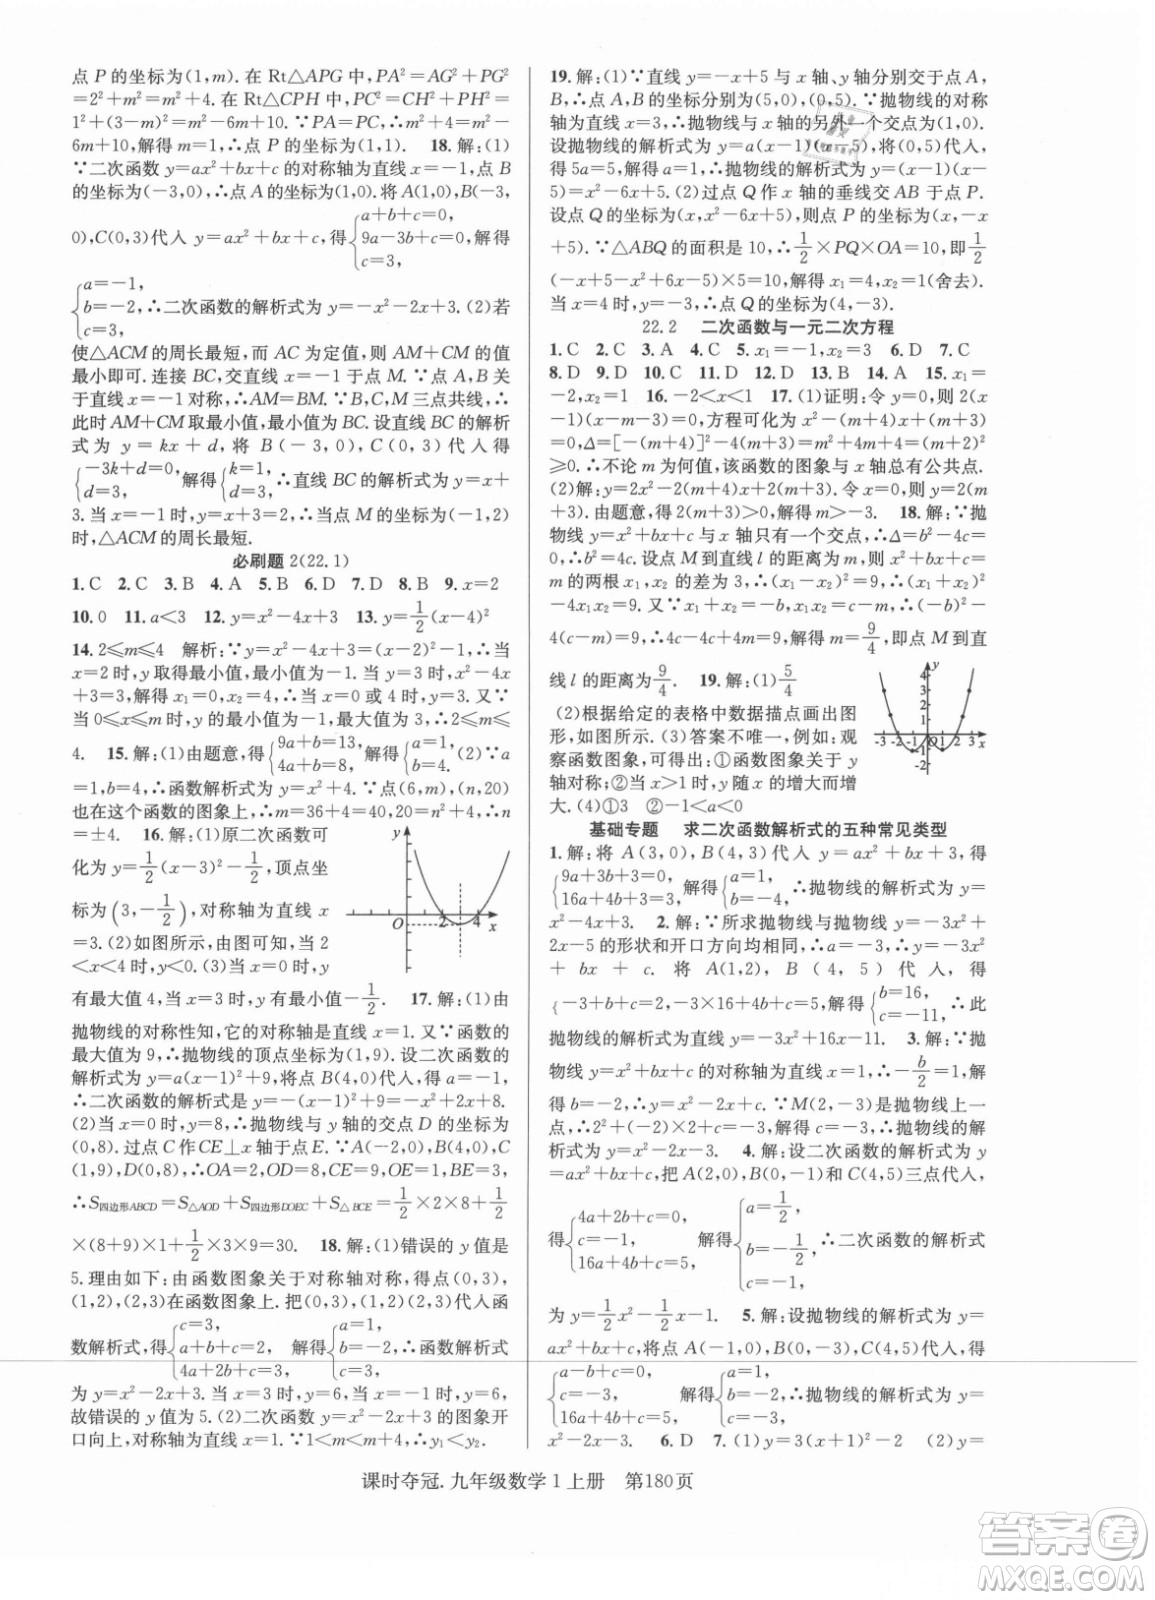 点 P 的坐标为(1,m). 在 Rt△APG 中,PA²=AG²+PG²
=2²+m²=m²+4. 在 Rt△CPH 中,PC²=CH²+PH²=
1²+(3-m)²=m²-6m+10. ∵PA=PC,∴m²+4=m²-
6m+10,解得 m=1,∴点 P 的坐标为(1,1). 18. 解:(1)
∵二次函数 y=ax²+bx+c 的对称轴为直线 x=-1,点 B
的坐标为(-3,0),∴点 A 的坐标为(1,0). 将 A(1,0),B(-3,
0),C(0,3)代入 y=ax²+bx+c,得{a+b+c=0, 9a-3b+c=0, c=3, 解得
{a=-1, b=-2, c=3, ∴二次函数的解析式为 y=-x²-2x+3. (2)若
使△ACM 的周长最短,而 AC 为定值,则 AM+CM 的值
最小即可. 连接 BC,交直线 x=-1 于点 M. ∵点 A,B 关
于直线 x=-1 对称,∴AM=BM. ∵B,C,M 三点共线,∴
此时 AM+CM 取最小值,最小值为 BC. 设直线 BC 的解析
式为 y=kx+d,将 B(-3,0),C(0,3)代入得
{-3k+d=0, d=3, 解得{k=1, d=3, ∴直线 BC 的解析式为 y=x+
3. 当 x=-1 时,y=-1+3=2,∴当点 M 的坐标为(-1,2)
时,△ACM 的周长最短.
必刷题 2(22.1)
1. C 2. C 3. B 4. A 5. B 6. D 7. D 8. B 9. x=2
10. 0 11. a<3 12. y=x²-4x+3 13. y=1/2(x-4)²
14. 2≤m≤4 解析:∵y=x²-4x+3=(x-2)²-1,∴当
x=2 时,y 取得最小值,最小值为-1. 当 y=3 时,x²-4x
+3=3,解得 x₁=0,x₂=4,∴当 x=0 或 4 时,y=3. 又∵
当 0≤x≤m 时,y 的最小值为-1,最大值为 3,∴2≤m≤
4. 15. 解:(1)由题意,得{9a+b=13, 4a+b=8, 解得{a=1, b=4. (2)∵a
=1,b=4,∴函数解析式为 y=x²+4. ∵点(6,m),(n,20)
也在这个函数的图象上,∴m=36+4=40,20=n²+4,∴n
=±4. 16. 解:(1)原二次函数可
化为 y=1/2(x-3)²-1/2,顶点坐
标为(3,-1/2),对称轴为直线 x
=3. (2)如图所示,由图可知当 2
<x<4 时,y<0. (3)当 x=6 时,y
有最大值 4,当 x=3 时,y 有最小值-1/2. 17. 解:(1)由
抛物线的对称性知,它的对称轴是直线 x=1. 又∵函数的
最大值为 9,∴抛物线的顶点坐标为(1,9). 设二次函数的
解析式为 y=a(x-1)²+9,将点 B(4,0)代入,得 a=-1,
∴二次函数的解析式是 y=-(x-1)²+9=-x²+2x+8.
(2)当 x=0 时,y=8,∴抛物线与 y 轴的交点 D 的坐标为
(0,8). 过点 C 作 CE⊥x 轴于点 E. ∵A(-2,0),B(4,0),C
(1,9),D(0,8),∴OA=2,OD=8,CE=9,BE=3,
∴S四边形ABCD=S△AOD+S四边形DOEC+S△BCE=1/2×2×8+1/2
×(8+9)×1+1/2×3×9=30. 18. 解:(1)错误的 y 值是
5. 理由如下:由函数图象关于对称轴对称,得点(0,3),
(1,2),(2,3)在函数图象上. 把(0,3),(1,2),(2,3)代入函
数解析式,得{c=3, a+b+c=2, 4a+2b+c=3, 解得{a=1, b=-2, c=3, ∴函数解析式
为 y=x²-2x+3. 当 x=3 时,y=6,当 x=-1 时,y=6,
故错误的 y 值为 5. (2)二次函数 y=x²-2x+3 的图象开
口向上,对称轴为直线 x=1. ∵1<m<m+4,∴y₁<y₂.
19. 解:(1)∵直线 y=-x+5 与 x 轴、y 轴分别交于点 A,
B,∴点 A,B 的坐标分别为(5,0),(0,5). ∵抛物线的对称
轴为直线 x=3,∴抛物线与 x 轴的另外一个交点为(1,0).
设抛物线的解析式为 y=a(x-1)(x-5),将(0,5)代入,
得 5a=5,解得 a=1,∴抛物线的解析式为 y=(x-1)(x-
5)=x²-6x+5. (2)过点 Q 作 x 轴的垂线交 AB 于点 P.
设点 Q 的坐标为(x,x²-6x+5),则点 P 的坐标为(x,-x
+5). ∵△ABQ 的面积是 10,∴1/2×PQ×OA=10,即1/2
(-x+5-x²+6x-5)×5=10,解得 x₁=4,x₂=1(舍去).
当 x=4 时,y=-3,∴点 Q 的坐标为(4,-3).
22.2 二次函数与一元二次方程
1. C 2. C 3. A 4. C 5. x₁=-1,x₂=3 6. D 7. C
8. D 9. B 10. C 11. D 12. D 13. B 14. A 15. x₁=
-2,x₂=1 16. -2<x<1 17. (1)证明:令 y=0,则 2(x
-1)(x-m-3)=0,方程可化为 x²-(m+4)x+(m+3)
=0,Δ=[-(m+4)]²-4(m+3)=m²+4m+4=(m+2)²
≥0. ∴不论 m 为何值,该函数的图象与 x 轴总有公共点.
(2)解:y=2x²-2(m+4)x+2(m+3). 令 x=0,则 y=2(m
+3). 由题意,得 2(m+3)>0,解得 m>-3. 18. 解:∵抛
物线 y=x²+bx+c 与直线只有一个公共点,∴Δ=b²-4c
=0,∴b²=4c. 设点 M 到直线 l 的距离为 m,则 x²+bx+c=
m 的两根 x₁,x₂ 的差为 3,∴(x₁-x₂)²=9,∴(x₁+x₂)²
-4x₁x₂=9. 又∵x₁+x₂=-b,x₁x₂=c-m,∴(-b)²-
4(c-m)=9,∴4c-4c+4m=9,解得 m=9/4,即点 M 到直
线 l 的距离为9/4. 19. 解:(1)5/4
(2)根据给定的表格中数据描点画出图
形,如图所示. (3)答案不唯一,例如:观
察函数图象,可得出:①函数图象关于 y
轴对称;②当 x>1 时,y 随 x 的增大而增
大. (4)①3 ②-1<a<0
基础专题 求二次函数解析式的五种常见类型
1. 解:将 A(3,0),B(4,3)代入 y=ax²+bx+3,得
{9a+3b+3=0, 16a+4b+3=3, 解得{a=1, b=-4, ∴抛物线的解析式为 y=x²
-4x+3. 2. 解:∵所求抛物线与抛物线 y=-3x²+
2x-5 的形状和开口方向均相同,∴a=-3,∴y=-3x²
+bx+c. 将 A(1,2),B(4,5)代入,得
{-3+b+c=2, -3×16+4b+c=5, 解得{b=16, c=-11, ∴此
抛物线的解析式为直线 y=-3x²+16x-11. 3. 解:∵抛
物线 y=x²+bx-3 的对称轴为直线 x=1,∴-b/2=1,解得
b=-2,∴y=x²-2x-3. ∵M(2,-3)是抛物线上一
点,∴2²+2b-3=-3,解得 b=-2,∴这条抛物线的函数
解析式为 y=x²-2x-3. 4. 解:设二次函数的解析式为
y=ax²+bx+c,把 A(2,0),B(0,-1)和 C(4,5)三点代入,
得{4a+2b+c=0, c=-1, 16a+4b+c=5, 解得{a=1/2, b=-1/2, c=-1, ∴二次函数的解析式
为 y=1/2x²-1/2x-1. 5. 解:设抛物线的解析式为 y=
ax²+bx+c,将点 A(-1,0),B(0,-3),C(4,5)代入,得
{a-b+c=0, c=-3, 16a+4b+c=5, 解得{a=1, b=-2, c=-3, ∴抛物线的解析式为 y=
x²-2x-3. 6. D 7. (1)y=3(x+1)²-2 (2)y=
课时夺冠. 九年级数学 1 上册 第180页
答案圈
MXQE.COM